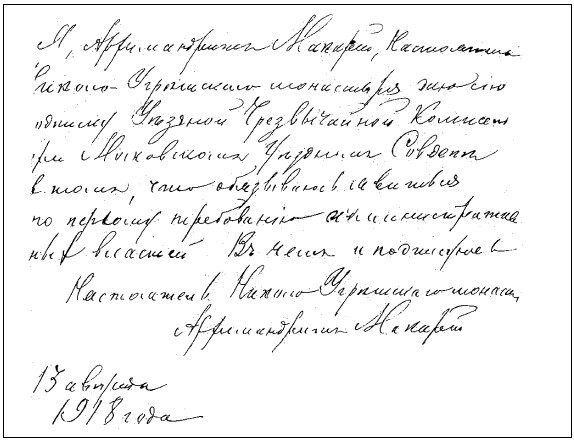 Я, Архимандрит Макарий, Настоятель
Николо-Угрешского монастыря даю сию
подписку Уездной Чрезвычайной Комиссии
при Московском Уездном Совдепе
в том, что обязываюсь явиться
по первому требованию административ
ных властей В чем и подписуюсь
Настоятель Николо Угрешского монаст,
Архимандрит Макарий
13 августа
1918 года